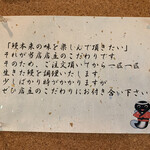 「鰻本来の味を楽しんで頂きたい」
それが当店店主のこだわりです。
そのため、ご注文頂いてから一匹一匹
生きた鰻を調理いたします。
少しばかり時がかかりますが
ぜひ店主のこだわりにお付き合い下さい